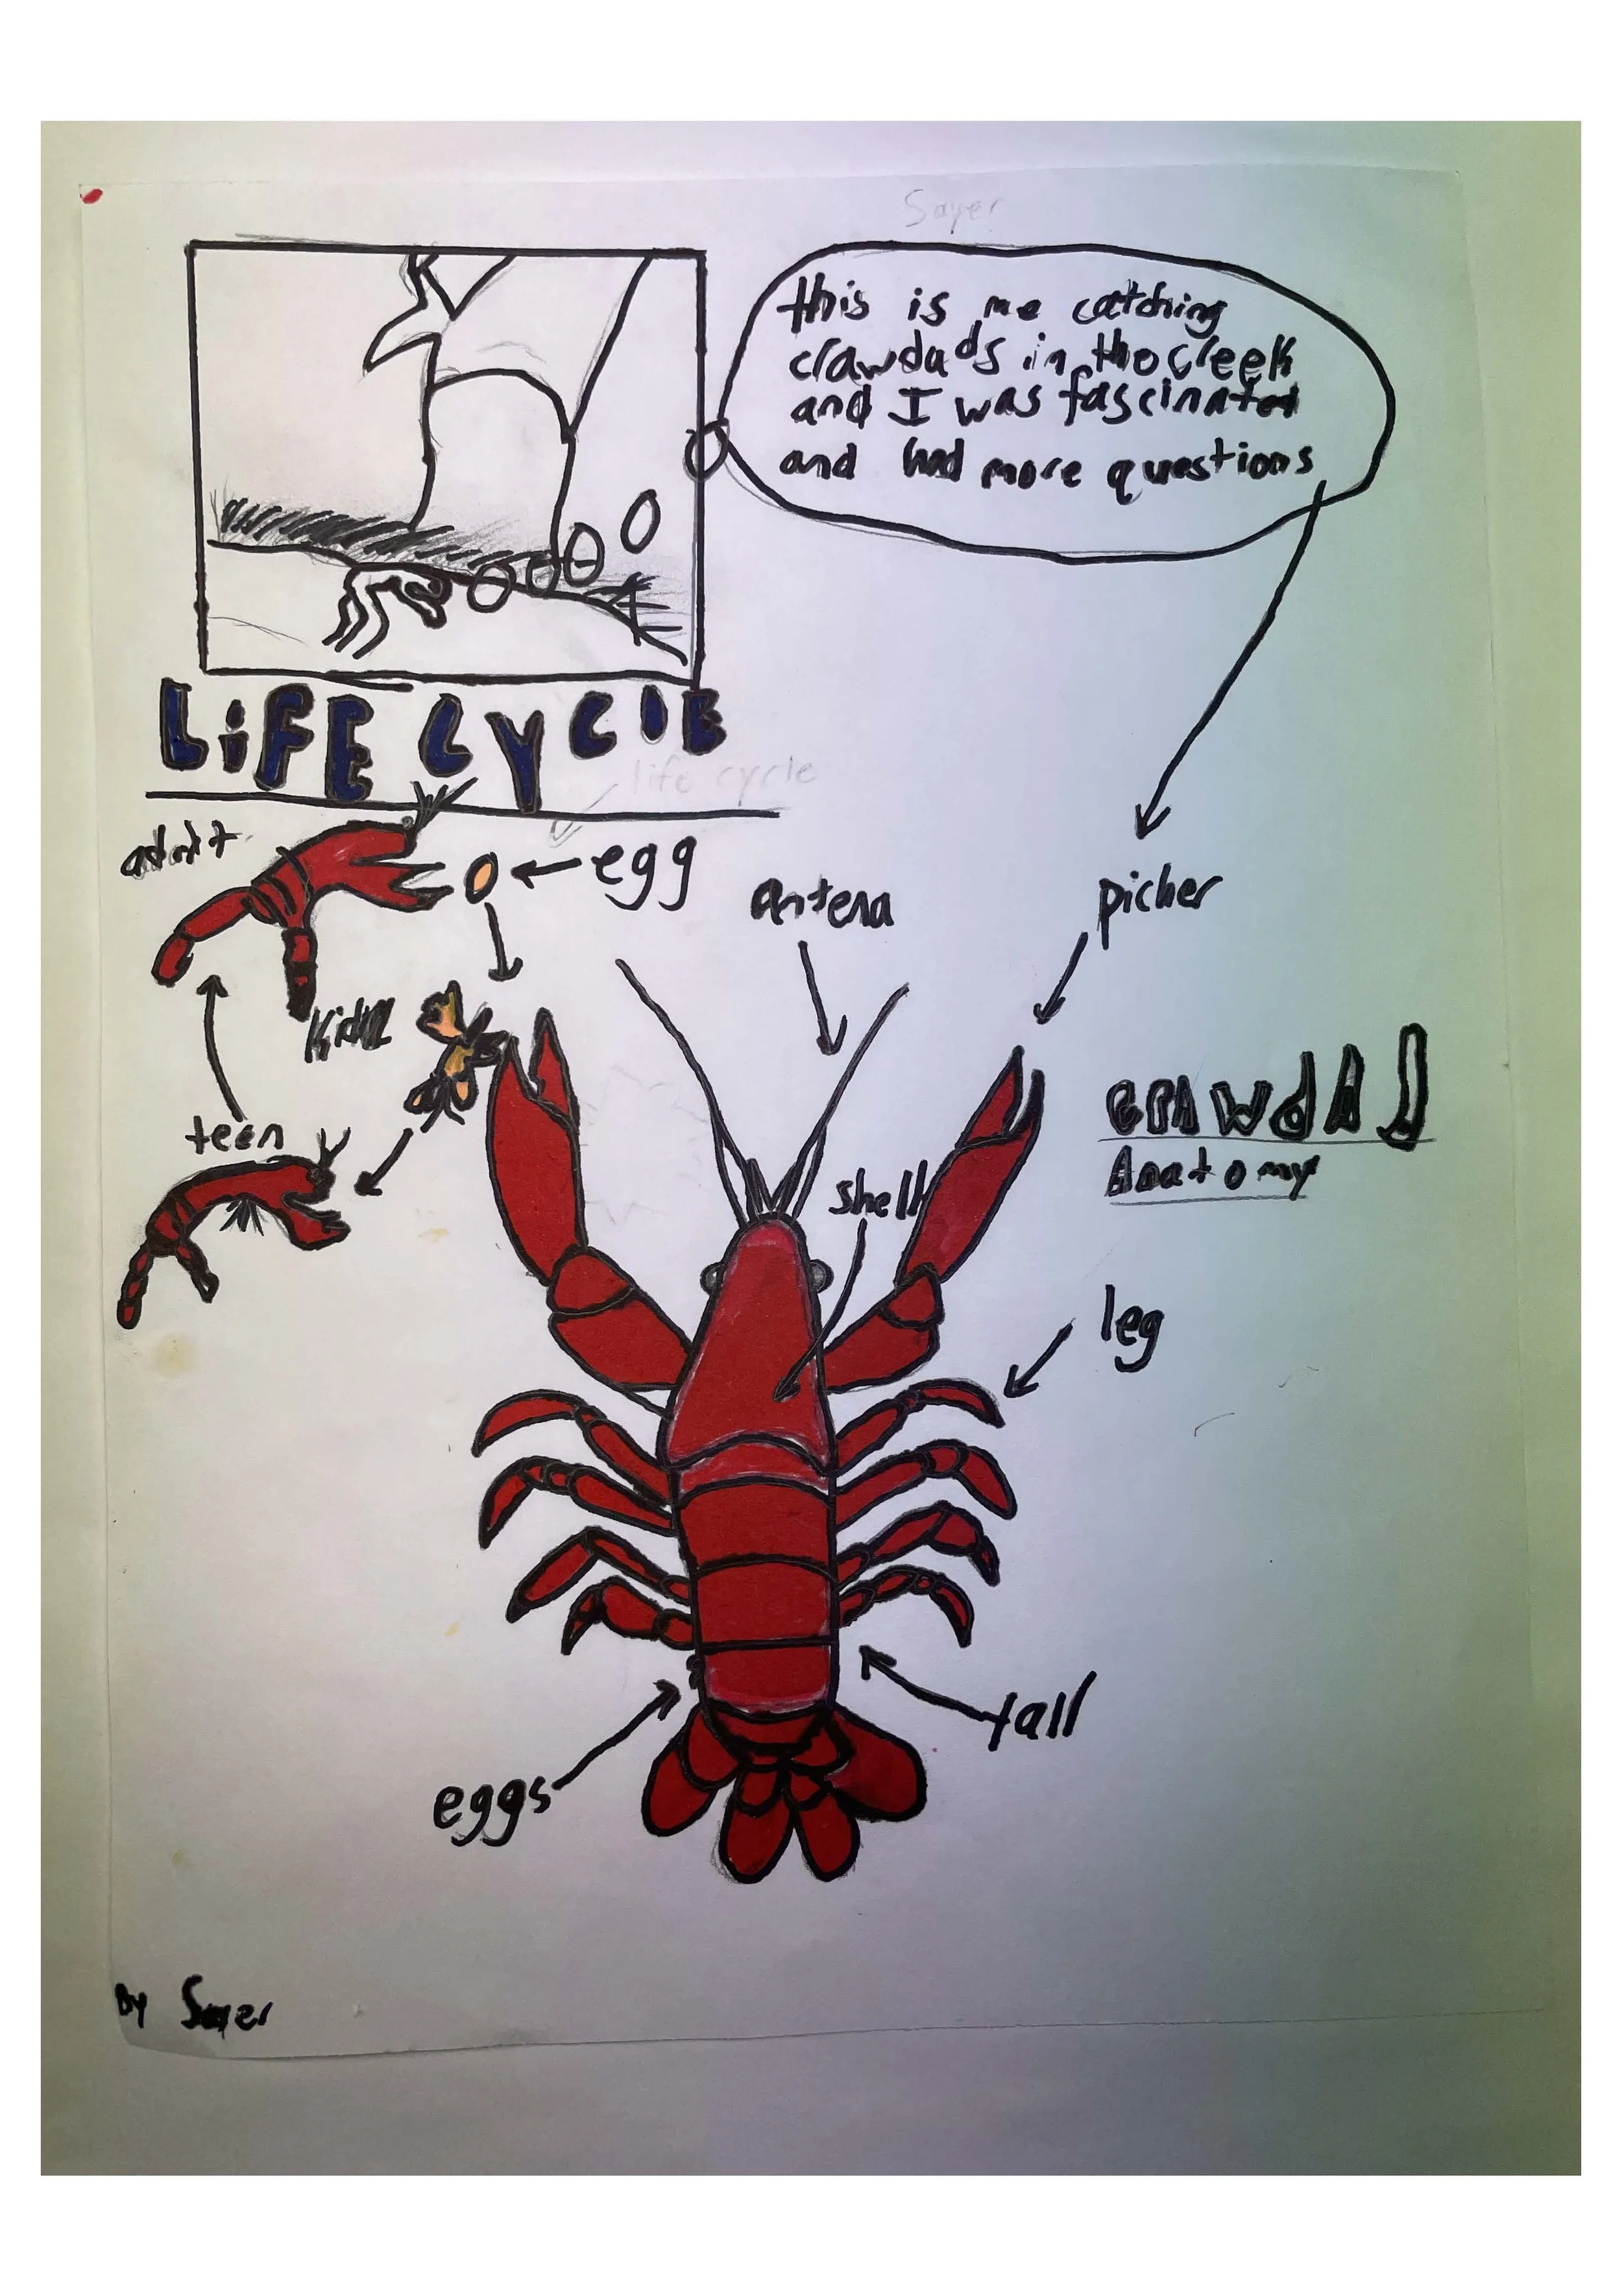 Sayer
this is me catching
crawdads in the creek
and I was fascinated
and had more questions
LiFE CYClE
life cycle
adult
egg
antena
picher
Kid
teen
CRAWdAd
Anatomy
shell
leg
tail
eggs
By Sayer